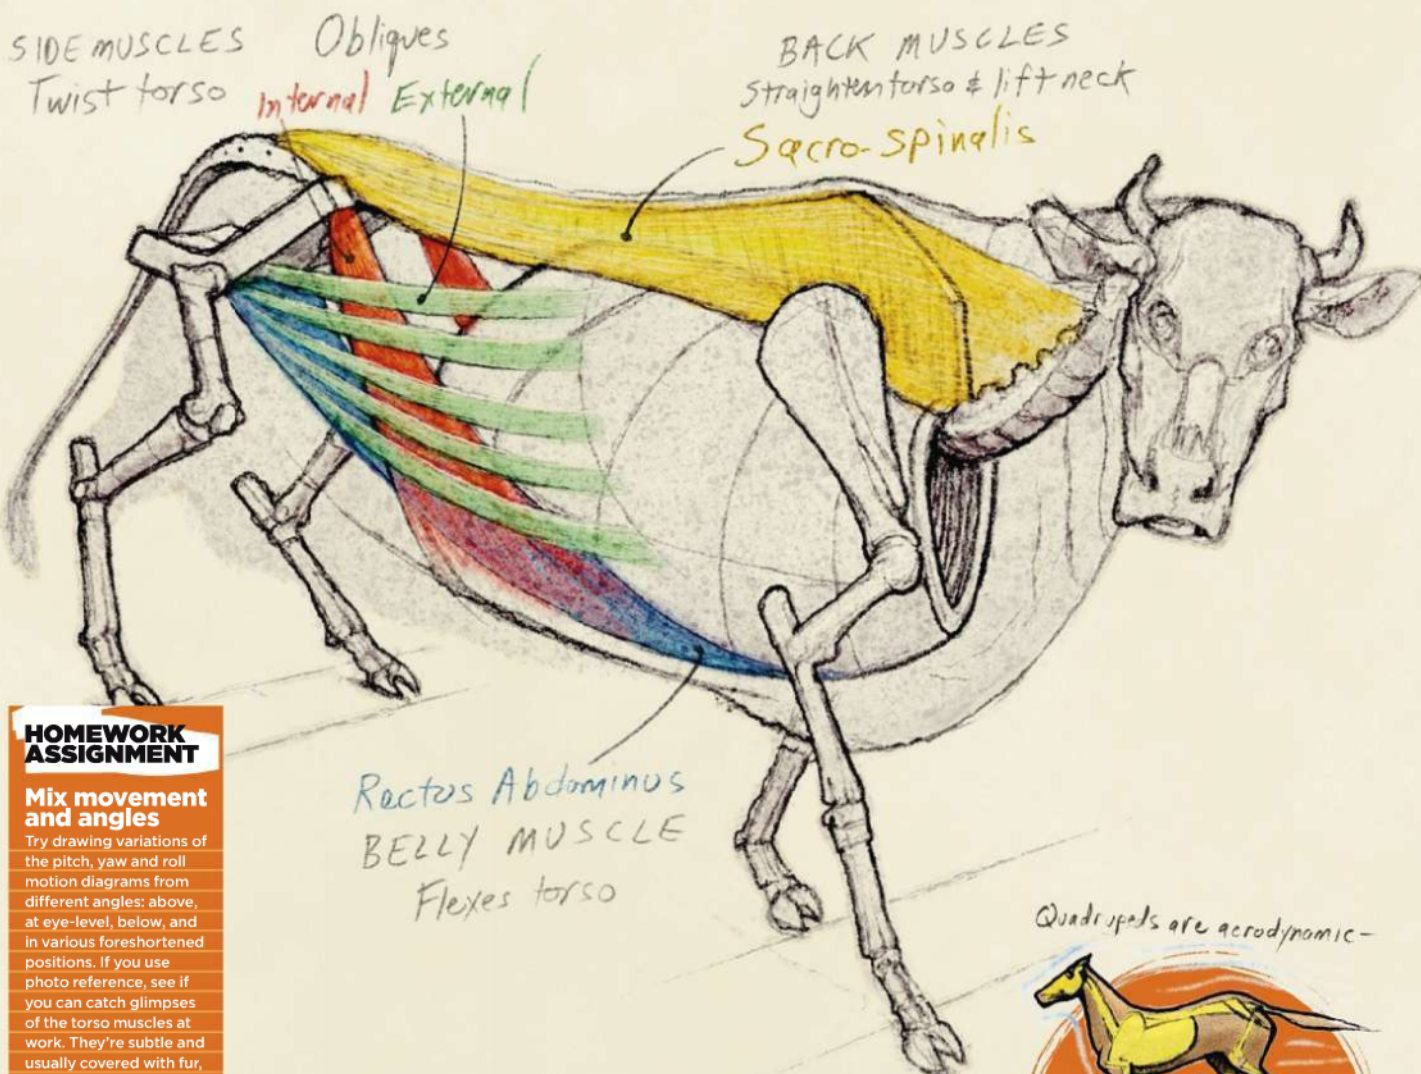 SIDE MUSCLES
Twist torso
Obliques
Internal External
BACK MUSCLES
Straighten torso & lift neck
Sacro-spinalis
Rectus Abdominus
BELLY MUSCLE
Flexes torso
HOMEWORK
ASSIGNMENT
Mix movement
and angles
Try drawing variations of
the pitch, yaw and roll
motion diagrams from
different angles: above,
at eye-level, below, and
in various foreshortened
positions. If you use
photo reference, see if
you can catch glimpses
of the torso muscles at
work. They're subtle and
usually covered with fur,
Quadrupeds are aerodynamic–